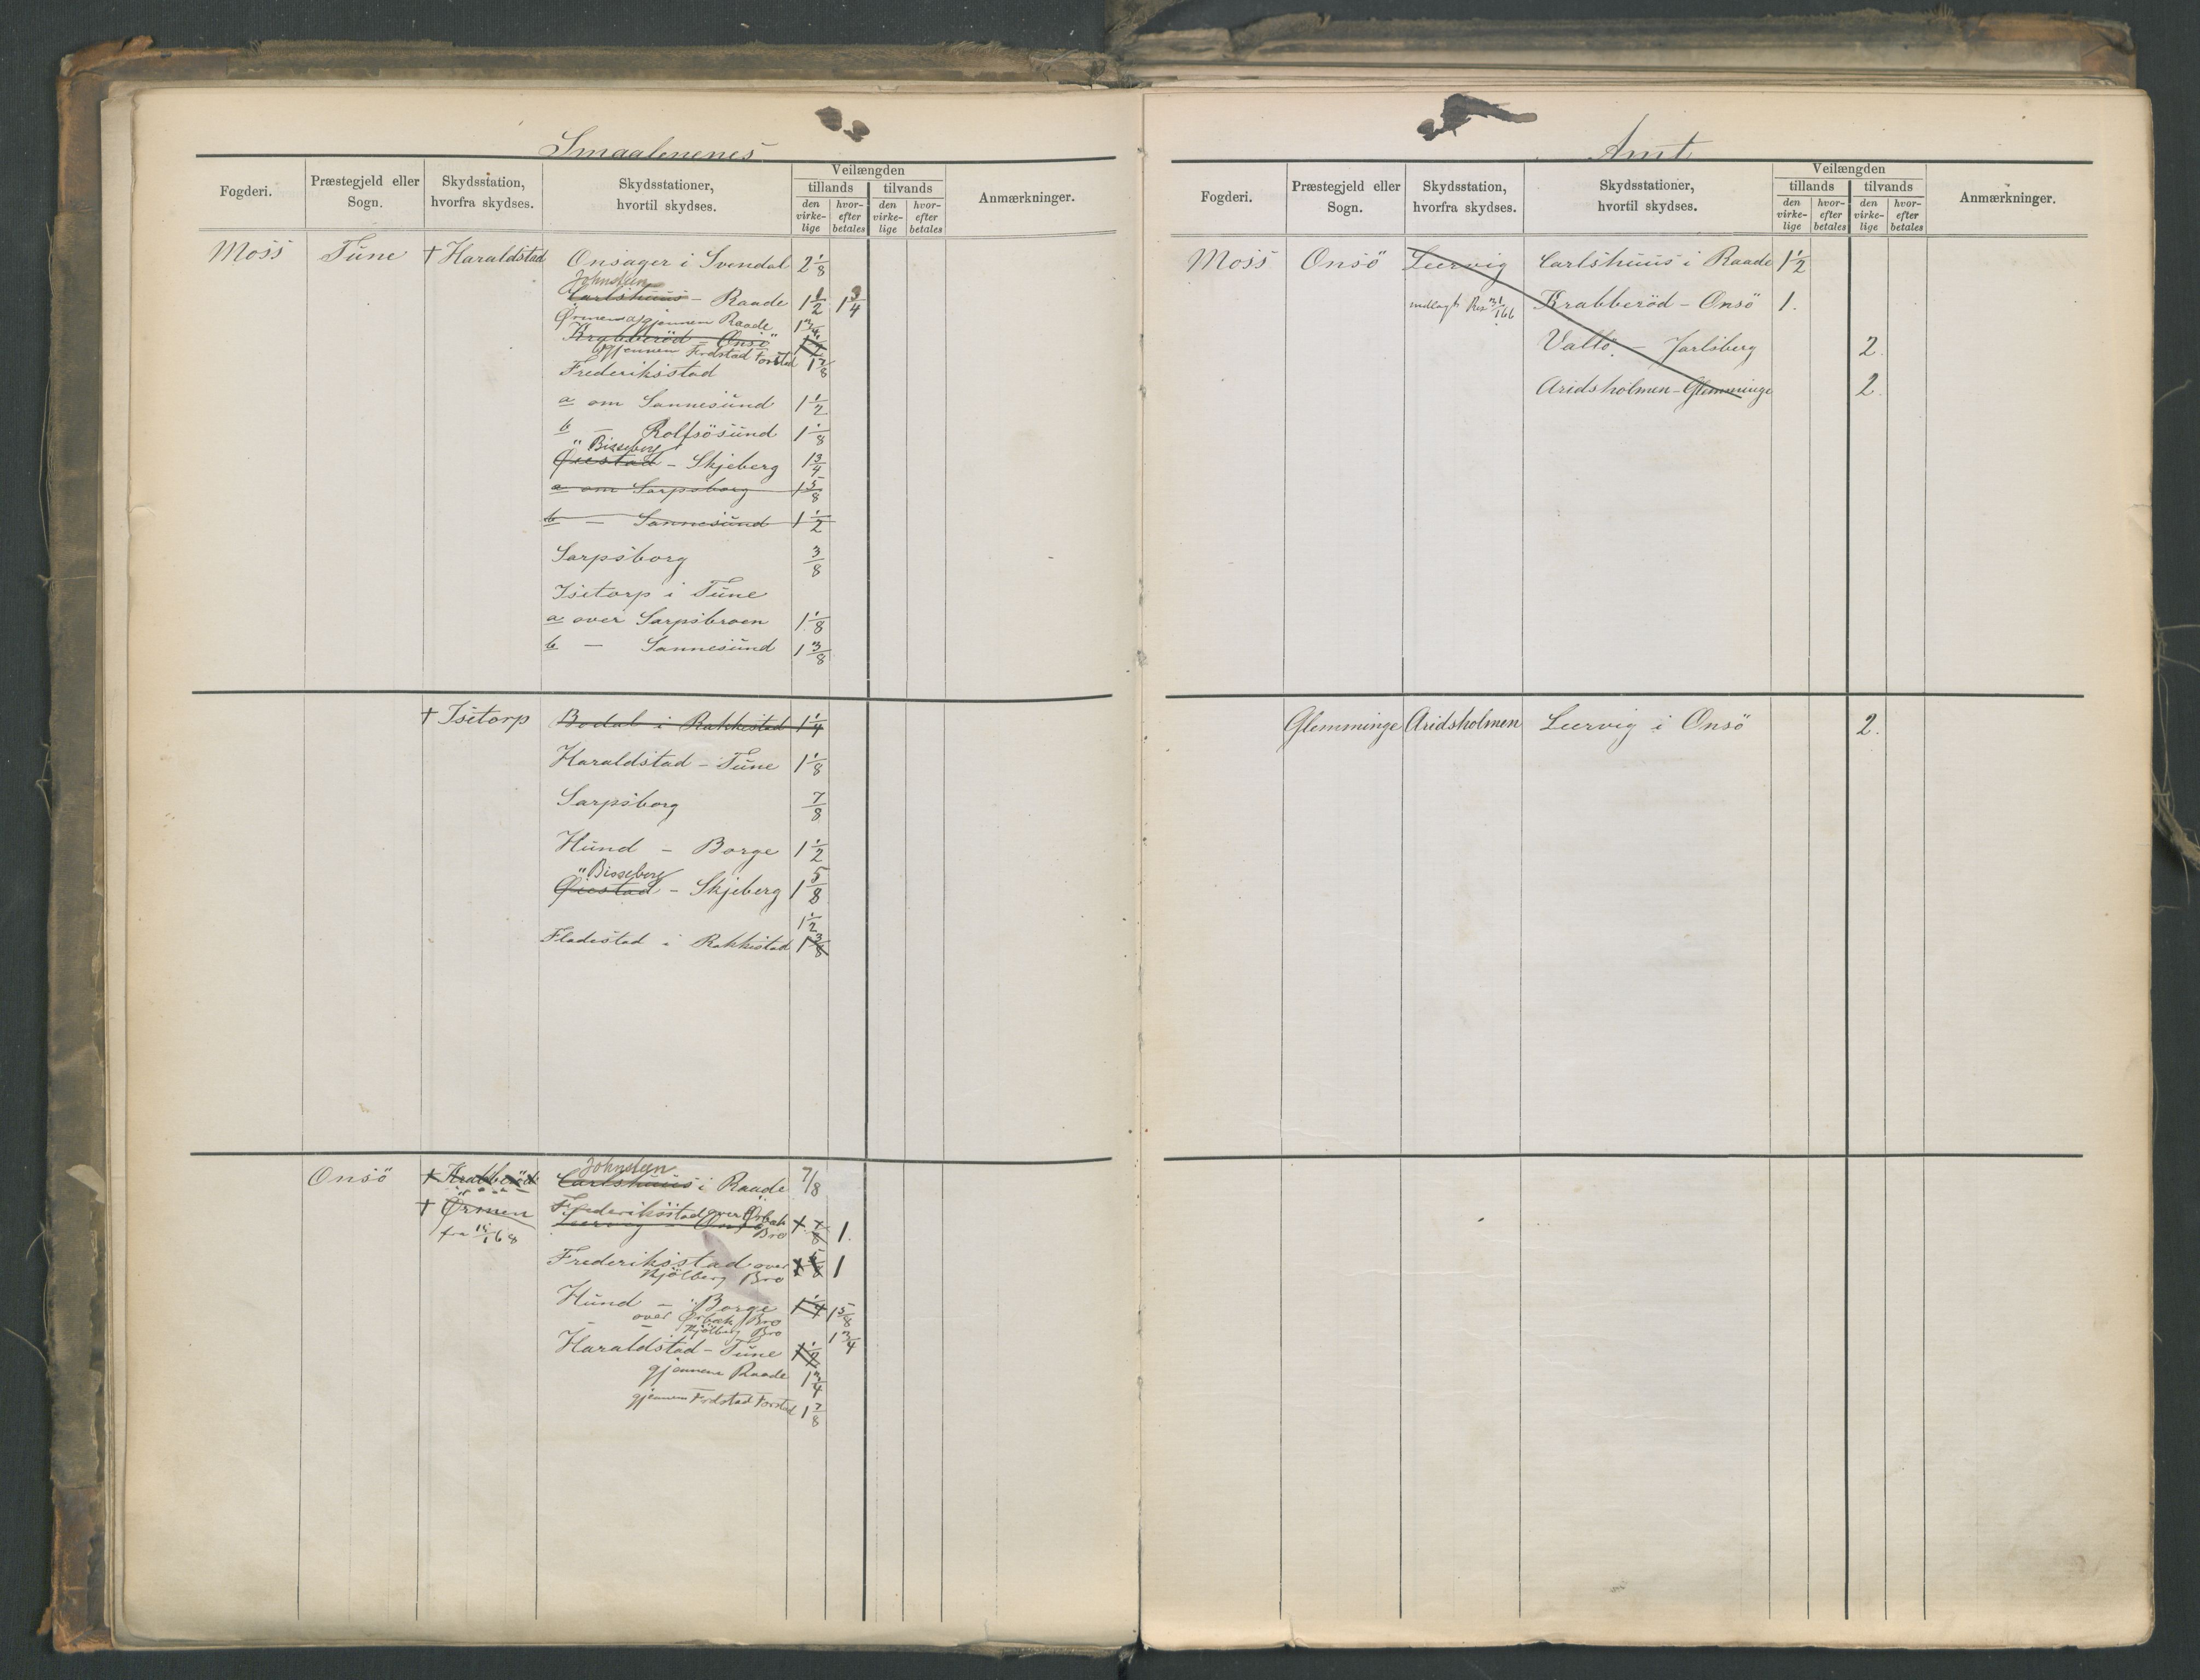 Smaalenenes
Fogderi.
Præstegjeld eller Sogn.
Skydsstation, hvorfra skydses.
Skydsstationer, hvortil skydses.
Veilængden
tillands
tilvands
den virkelige
hvorefter betales
den virkelige
hvorefter betales
Anmærkninger.
Moss Tune † Haraldstad Onsager i Svendal 2 1/8
Johnsteen
Carlshuus - Raade 1 1/2 1 3/4
Ørmen a) gjennem Raade 1 3/4
Krabberöd - Onsö
b) gjennem Fredstad Forstad 1 7/8
Frederiksstad
a om Sannesund 1 1/2
b — Rolfsösund 1 1/8
" Bisseberg
Øiestad - Skjeberg 1 3/4
a om Sarpsborg 1 5/8
b — Sannesund 1 1/2
Sarpsborg 3/8
Isetorp i Tune
a over Sarpsbroen 1 1/8
b — Sannesund 1 3/8
† Isetorp Bodal i Rakkestad 1 1/4
Haraldstad - Tune 1 1/8
Sarpsborg 7/8
Hund - Borge 1 1/2
" Bisseberg
Øiestad - Skjeberg 1 5/8
1 1/2
Fladestad i Rakkestad 1 3/8
Johnsteen
Onsö † Krabberöd Carlshuus i Raade 7/8
† Ørmen Frederiksstad over Ørbæk Bro 1
Leervig - Onsö 7/8
Frederiksstad over 1
Kjölberg Bro
Hund - Borge 1 1/4 1 5/8
over Ørbæk Bro
— Kjölberg Bro 1 3/4
Haraldstad - Tune 1 1/2
gjennem Raade 1 3/4
gjennem Fredstad Forstad 1 7/8
Amt
Fogderi.
Præstegjeld eller Sogn.
Skydsstation, hvorfra skydses.
Skydsstationer, hvortil skydses.
Veilængden
tillands
tilvands
den virkelige
hvorefter betales
den virkelige
hvorefter betales
Anmærkninger.
Moss Onsö Leervig Carlshuus i Raade 1 1/2
nedlagt Res Krabberöd - Onsö 1.
Vallö - Jarlsberg 2.
Aridsholmen - Glemminge 2.
Glemminge Aridsholmen Leervig i Onsö 2.